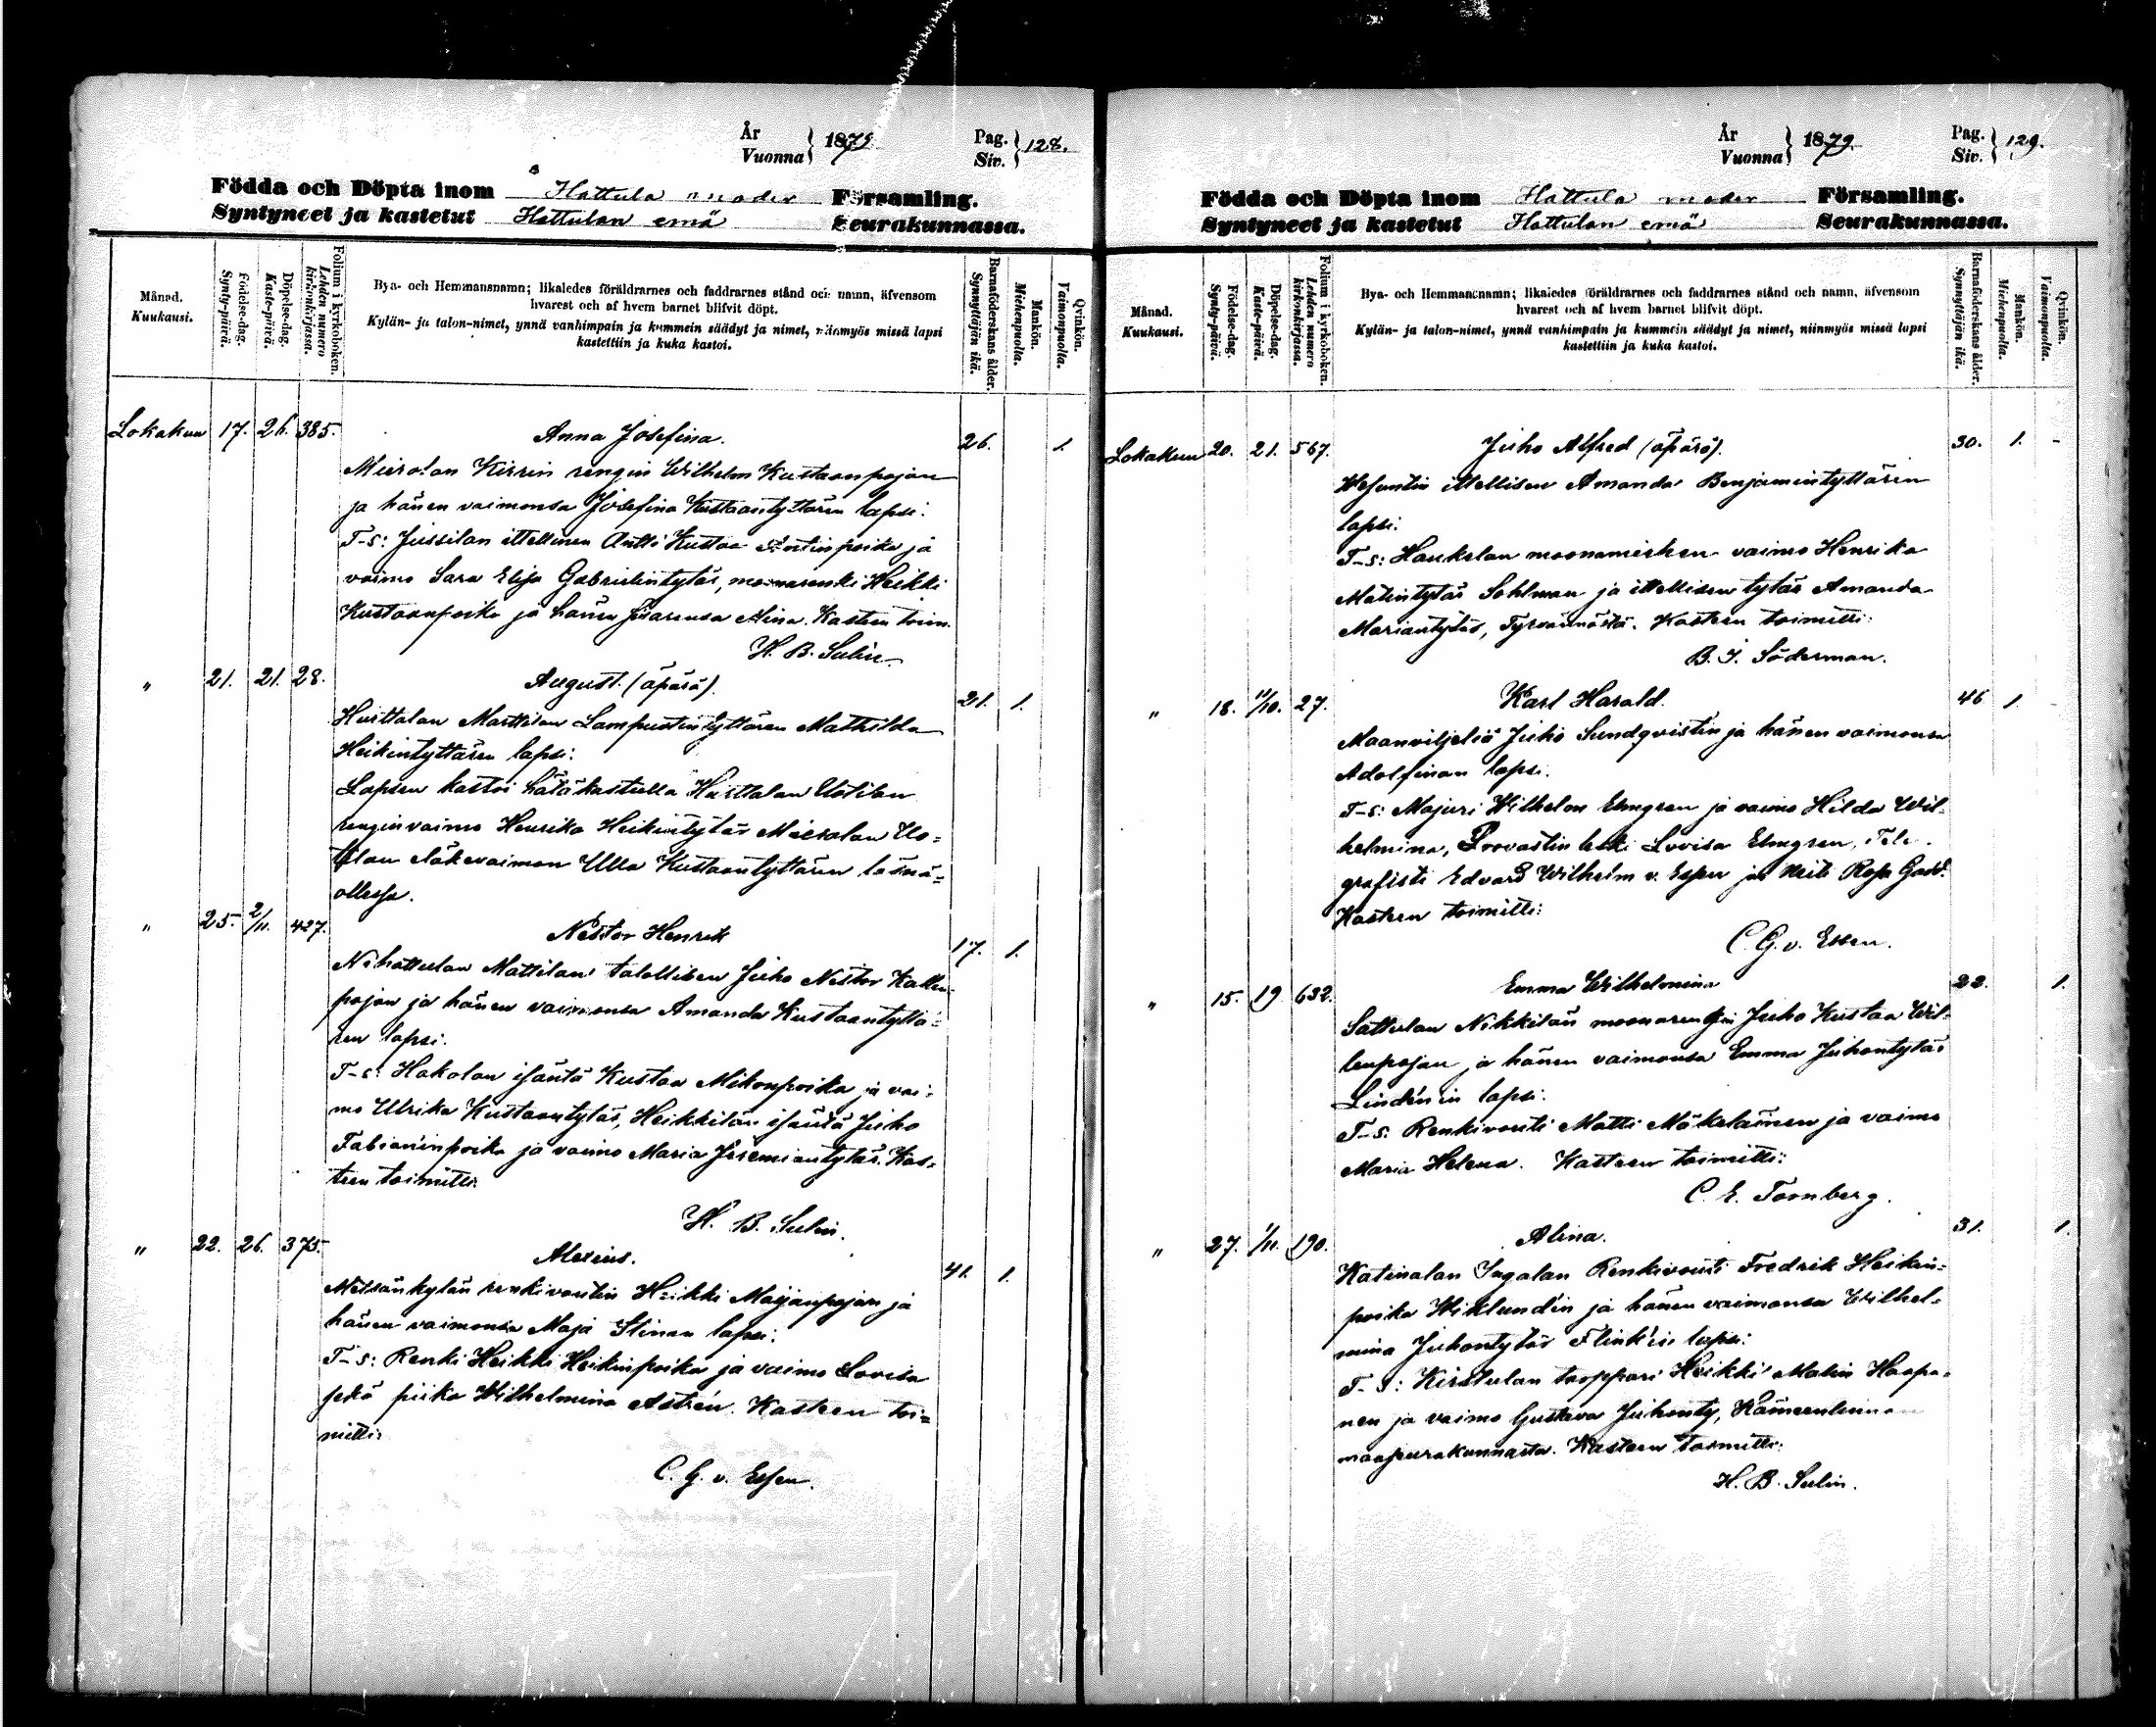 År
Vuonna } 1879. Pag.
Siv. } 128.
Födda och Döpta inom Hattula moder Församling.
Syntyneet ja kastetut Hattulan emä Seurakunnassa.
Månad.
Kuukausi.
Födelse-dag.
Synty-päivä.
Döpelse-dag.
Kaste-päivä.
Folium i kyrkoboken.
Lehden numero
kirkonkirjassa.
Bya- och Hemmansnamn; likaledes föräldrarnes och faddrarnes stånd och namn, äfvensom
hvarest och af hvem barnet blifvit döpt.
Kylän- ja talon-nimet, ynnä vanhimpain ja kummein säädyt ja nimet, niinmyös missä lapsi
kastettiin ja kuka kastoi.
Barnaföderskans ålder.
Synnyttäjän ikä.
Mankön.
Miehenpuolta.
Qvinkön.
Vaimonpuolta.
Lokakuu 17. 26. 385. Anna Josefina. 26. 1.
Mierolan Kirrin rengin Wilhelm Kustaanpojan
ja hänen vaimonsa Josefina Kustaantyttären lapsi:
T-s: Jussilan ittellinen Antti Kustaa Antinpoika ja
vaimo Sara Elisa Gabrielintytär, moonarenki Heikki
Kustaanpoika ja hänen sisarensa Mina. Kasteen toim.
H. B. Sulin.
" 21. 21. 28. August. (äpärä). 21. 1.
Hurttalan Marttilan Lampuotintyttären Mathilda
Heikintyttären lapsi:
Lapsen kastoi hätäkastella Hurttalan Uotilan
renginvaimo Henrika Heikintytär Mierolan Uo-
tilan eläkevaimon Ulla Kustaantyttären läsnä-
ollessa.
" 25. 2/11. 427. Nestor Henrik 17. 1.
Nihattulan Mattilan talollisen Juho Nestor Kallen-
pojan ja hänen vaimonsa Amanda Kustaantyttä-
ren lapsi.
T-s: Hakolan isäntä Kustaa Mikonpoika ja vai-
mo Ulrika Kustaantytär, Heikkilän isäntä Juho
Fabianinpoika ja vaimo Maria Jeremiantytär. Kas-
teen toimitti:
H. B. Sulin.
" 22. 26. 375. Alexius. 41. 1.
Metsänkylän renkivoutin Heikki Maijanpojan ja
hänen vaimonsa Maja Stinan lapsi.
T-s: Renki Heikki Heikinpoika ja vaimo Lovisa
sekä piika Wilhelmina Astrén. Kasteen toi-
mitti:
C. G. v. Essen.
År
Vuonna } 1879. Pag.
Siv. } 129.
Födda och Döpta inom Hattula moder Församling.
Syntyneet ja kastetut Hattulan emä Seurakunnassa.
Månad.
Kuukausi.
Födelse-dag.
Synty-päivä.
Döpelse-dag.
Kaste-päivä.
Folium i kyrkoboken.
Lehden numero
kirkonkirjassa.
Bya- och Hemmansnamn; likaledes föräldrarnes och faddrarnes stånd och namn, äfvensom
hvarest och af hvem barnet blifvit döpt.
Kylän- ja talon-nimet, ynnä vanhimpain ja kummein säädyt ja nimet, niinmyös missä lapsi
kastettiin ja kuka kastoi.
Barnaföderskans ålder.
Synnyttäjän ikä.
Mankön.
Miehenpuolta.
Qvinkön.
Vaimonpuolta.
Lokakuu 20. 21. 567. Juho Alfred (äpärä). 30. 1. -
ittellisen Amanda Benjamintyttären
lapsi.
T-s: Haukelan moonamiehen vaimo Henrika
Matintytär Sohlman ja ittellisen tytär Amanda
Mariantytär, Tyrvännöstä. Kasteen toimitti:
B. I. Söderman.
" 18. 11/10. 27. Karl Harald. 46 1
Maanviljeliä Juho Sundqvistin ja hänen vaimonsa
Adolfinan lapsi.
T-s: Majuri Wilhelm Elmgren ja vaimo Hilda Wil-
helmina, Provastin leski Lovisa Elmgren, Tele-
grafisti Edvard Wilhelm v. Essen ja Neiti Rosa Gadd.
Kasteen toimitti:
C. G. v. Essen.
" 15. 19 632. Emma Wilhelmina 22. 1.
Sattulan Nikkilän moonarengin Juho Kustaa Wil-
lenpojan ja hänen vaimonsa Emma Juhontytär
Lindénin lapsi.
T-s: Renkivouti Matti Mäkeläinen ja vaimo
Maria Helena. Kasteen toimitti:
C. E. Tornberg.
" 27. 1/11. 190. Alina. 31. 1.
Katinalan Ingalan Renkivouti Fredrik Heikin-
poika Wiklund'in ja hänen vaimonsa Wilhel-
mina Juhontytär Flink'in lapsi:
T-s: Kirstulan torppari Heikki Matin Haapa-
nen ja vaimo Gustava Juhonty, Hämeenlinnan
maaseurakunnasta. Kasteen toimitti:
H. B. Sulin.